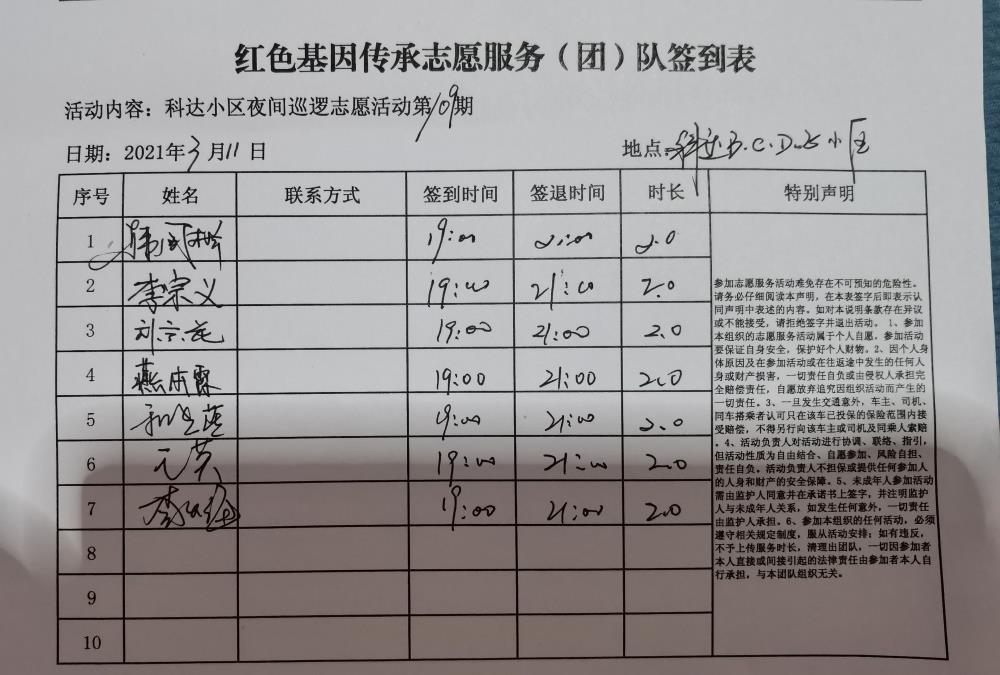 红色基因传承志愿服务（团）队签到表
活动内容：科达小区夜间巡逻志愿活动第109期
日期：2021年3月11日 地点：科达B.C.D.E小区
序号 姓名 联系方式 签到时间 签退时间 时长 特别声明
1 19:00 21:00 2.0
2 李宗义 19:00 21:00 2.0
3 19:00 21:00 2.0
4 19:00 21:00 2.0
5 9:00 21:00 2.0
6 元英 19:00 21:00 2.0
7 19:00 21:00 2.0
8
9
10
参加志愿服务活动难免存在不可预知的危险性。
请务必仔细阅读本声明，在本表签字后即表示认
同声明中表述的内容。如对本说明条款存在异议
或不能接受，请拒绝签字并退出活动。1、参加
本组织的志愿服务活动属于个人自愿，参加活动
要保证自身安全，保护好个人财物。2、因个人身
体原因及在参加活动或在往返途中发生的任何人
身或财产损害，一切责任自负或由侵权人承担完
全赔偿责任，自愿放弃追究因组织活动而产生的
一切责任。3、一旦发生交通意外，车主、司机、
同车搭乘者认可只在该车已投保的保险范围内接
受赔偿，不得另行向该车主或司机及同乘人索赔
。4、活动负责人对活动进行协调、联络、指引，
但活动性质为自由结合、自愿参加、风险自担、
责任自负。活动负责人不担保或提供任何参加人
的人身和财产的安全保障。5、未成年人参加活动
需由监护人同意并在承诺书上签字，并注明监护
人与未成年人关系，如发生任何意外，一切责任
由监护人承担。6、参加本组织的任何活动，必须
遵守相关规定制度，服从活动安排；如有违反，
不予上传服务时长，清理出团队，一切因参加者
本人直接或间接引起的法律责任由参加者本人自
行承担，与本团队组织无关。